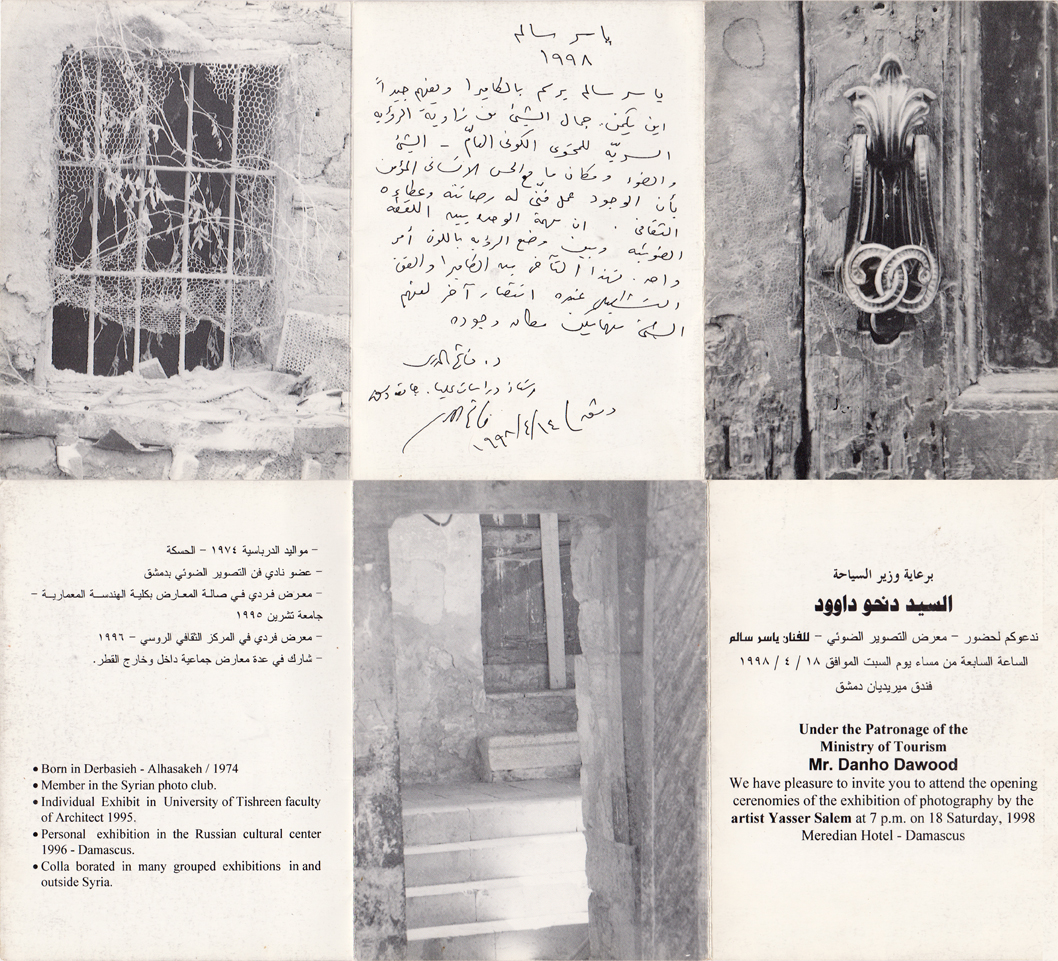 ياسر سالم
١٩٩٨
ياسر سالم يرسم بالكاميرا ويفهم جيداً
اين يكمن جمال الشيئ من زاوية الرؤيه
السريّه للمحتوى الكوني الهامّ – الشيئ
والضوء ومكان ما مع الحس الانساني المؤمن
بأن الوجود عمل فني له رصانته وعطاءه
الثقافي . ان سمة الوحده بين اللقطه
الضوئيه وبين وضع الرؤيه باللون أمر
واحد . فهذا التآخي بين الكاميرا والفن
التشكيلي عنده انتصار آخر لفهم
الشيئ
وجوده
د. فاتح المدرس
استاذ دراسات عليا. جامعة دمشق
دمشق ١٩٩٨/٤/١٤
فاتح المدرس
– مواليد الدرباسية ١٩٧٤ – الحسكة
– عضو نادي فن التصوير الضوئي بدمشق
– معرض فردي في صالة المعارض بكلية الهندسة المعمارية –
جامعة تشرين ١٩٩٥
– معرض فردي في المركز الثقافي الروسي – ١٩٩٦
– شارك في عدة معارض جماعية داخل وخارج القطر.
• Born in Derbasieh - Alhasakeh / 1974
• Member in the Syrian photo club.
• Individual Exhibit in University of Tishreen faculty
of Architect 1995.
• Personal exhibition in the Russian cultural center
1996 - Damascus.
• Colla borated in many grouped exhibitions in and
outside Syria.
برعاية وزير السياحة
السيد دنحو داوود
ندعوكم لحضور – معرض التصوير الضوئي – للفنان ياسر سالم
الساعة السابعة من مساء يوم السبت الموافق ١٨ / ٤ / ١٩٩٨
فندق ميريديان دمشق
Under the Patronage of the
Ministry of Tourism
Mr. Danho Dawood
We have pleasure to invite you to attend the opening
cerenomies of the exhibition of photography by the
artist Yasser Salem at 7 p.m. on 18 Saturday, 1998
Meredian Hotel - Damascus